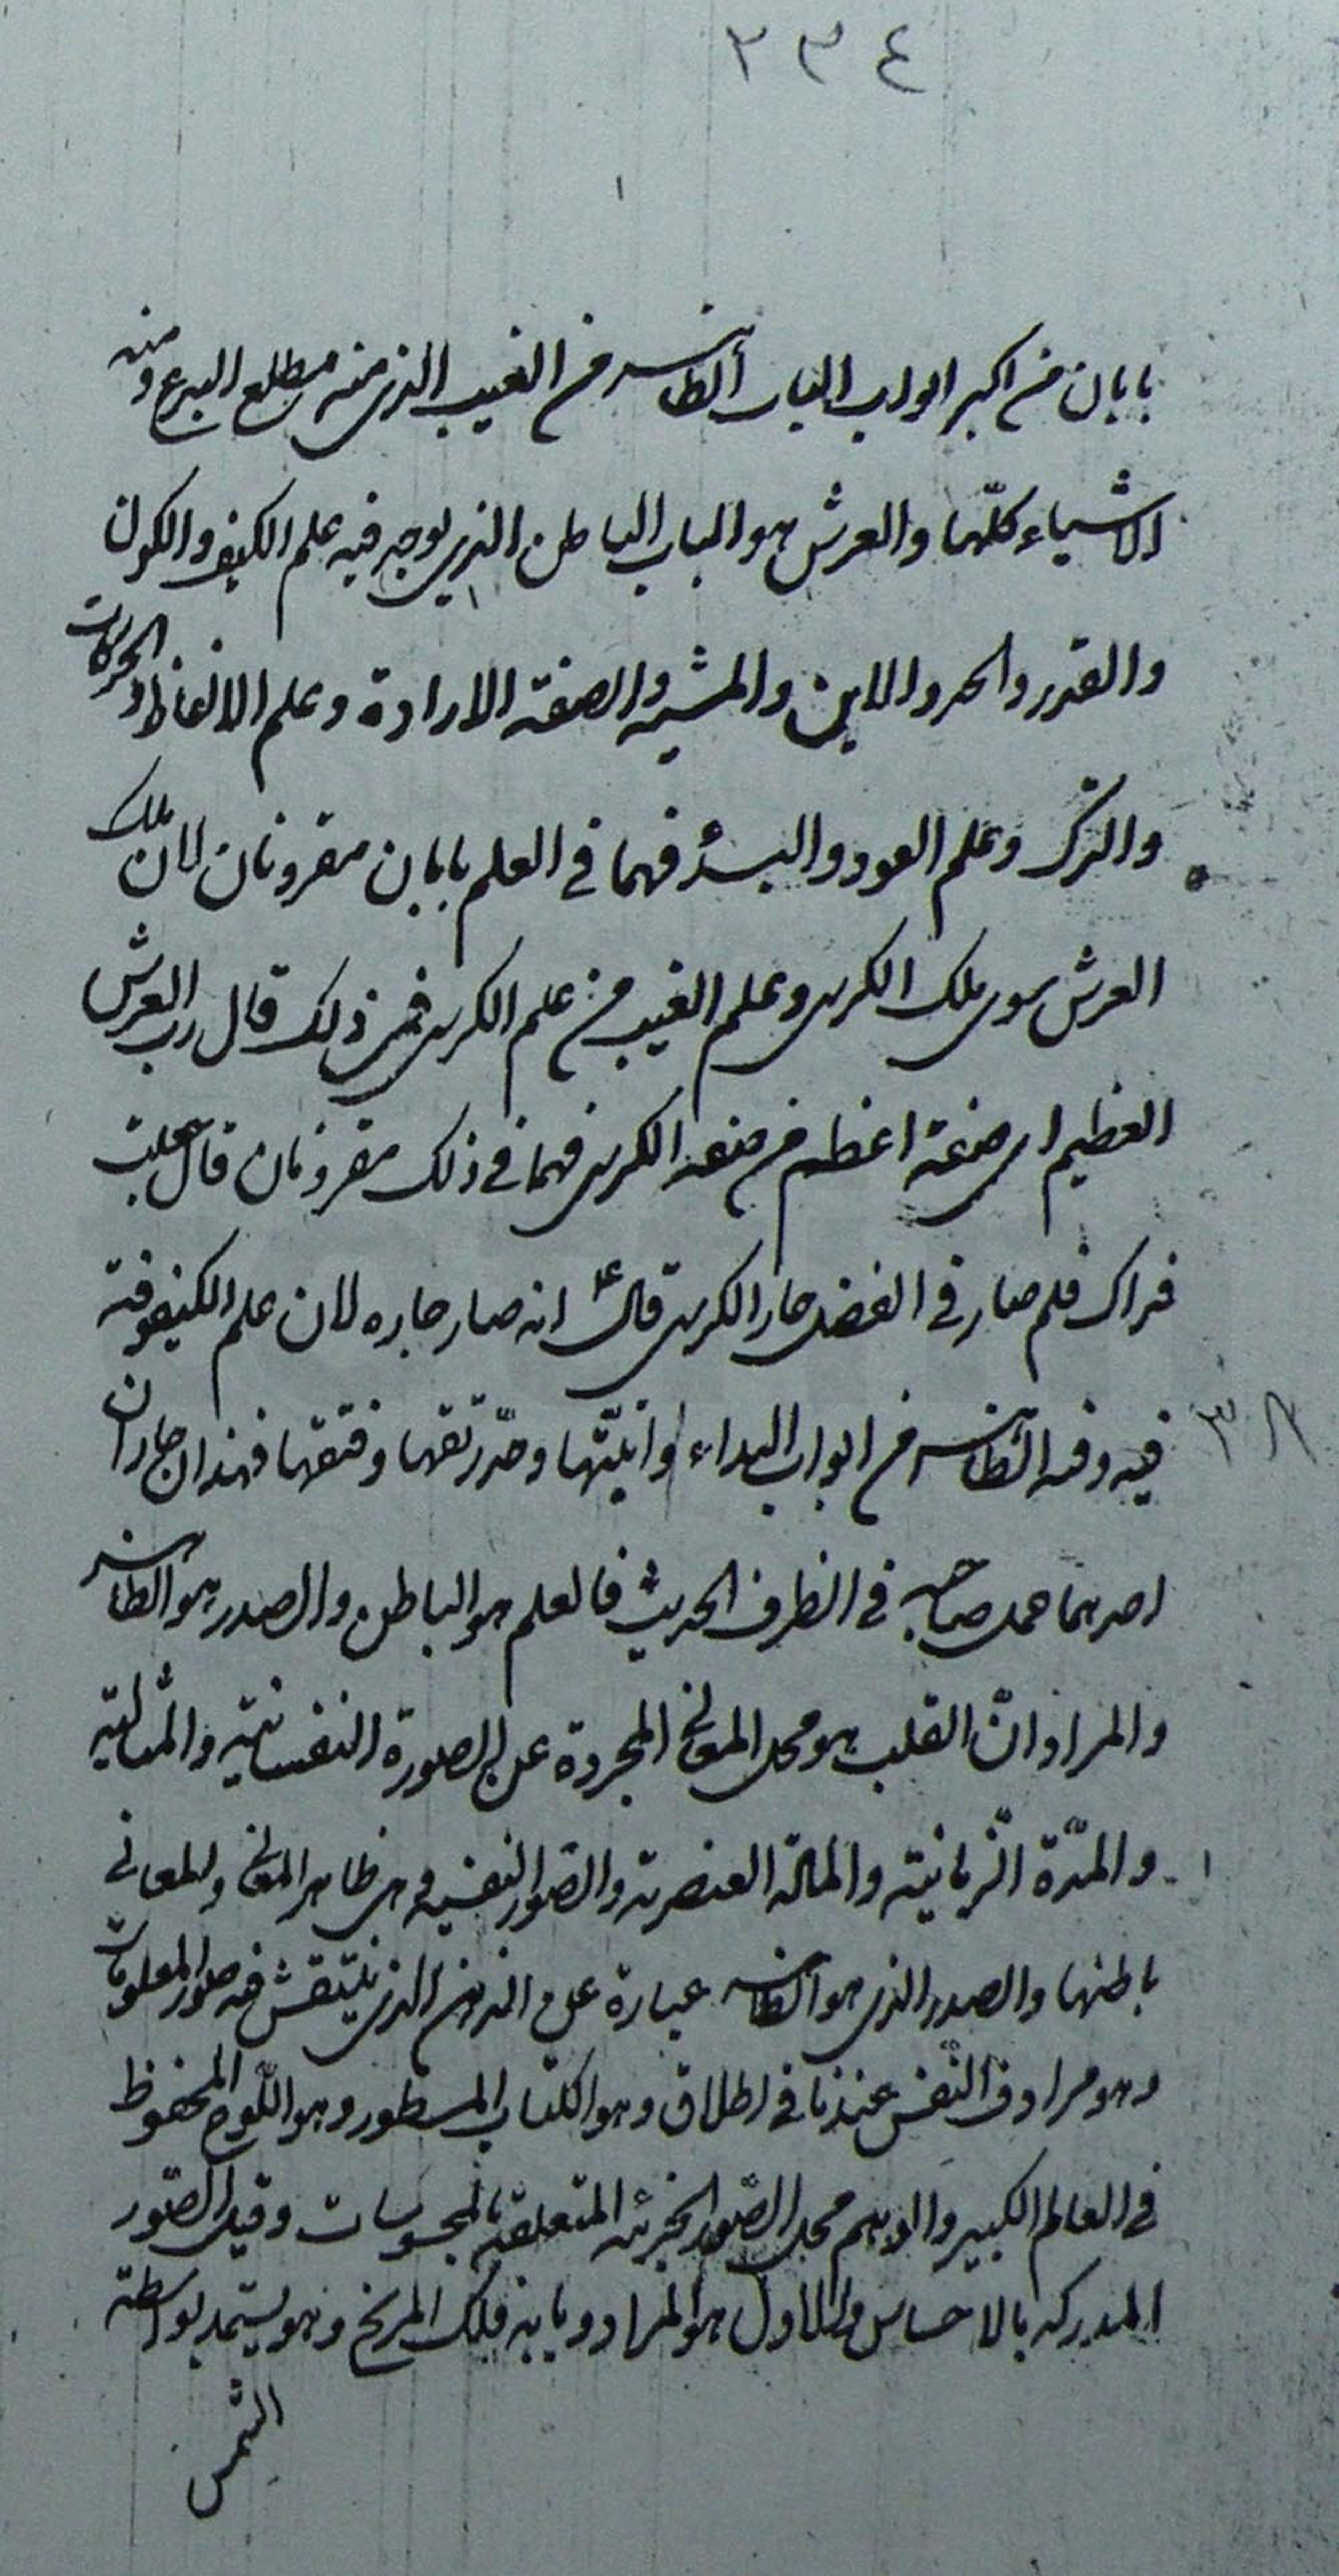 ٢٣٤
بابان من اكبر ابواب الغيوب الظاهر من الغيب الذي منه مطلع البدع ومنه
الاشياء كلّها والعرش هو الباب الباطن الذي يوجد فيه علم الكيف والكون
والقدر والحد والاين والمشيه والصفة الارادة وعلم الالفاظ والحركات
والترك وعلم العود والبدء فهما في العلم بابان مقرونان لان ملك
العرش سوى ملك الكرسي وعلمه اغيب من علم الكرسي فمن ذلك قال رب العرش
العظيم اى صفته اعظم من صفة الكرسي فهما في ذلك مقرونان قال جعلت
فداك فلم صار في الفضل جار الكرسي قال ع انه صار جاره لان علم الكيفوفية
فيه وفيه الظاهر من ابواب البداء وانيّتها وحدّ رتقها وفتقها فهذان جاران
احدهما حمل صاحبه في الظرف الحديث فالعلم هو الباطن والصدر هو الظاهر
والمراد انّ القلب هو محل المعاني المجردة عن الصورة النفسانية والمثالية
والمدّة الزمانيّة والمادّة العنصرية والصّور النفسيه هى ظاهر المعاني والمعاني
باطنها والصدر الذي هو الظاهر عبارة عن الذهن الذي ينتقش فيه صور المعلومات
وهو مرادف النّفس عندنا في اطلاق وهو الكتاب المسطور وهو اللّوح المحفوظ
في العالم الكبير والوهم محل الصّور الجزئيه المتعلقة بالمحسوسات وقيل الصّور
المدركه بالاحساس والاول هو المراد وبابه فلك المريخ وهو يستمد بواسطة
الشمس
٣٨